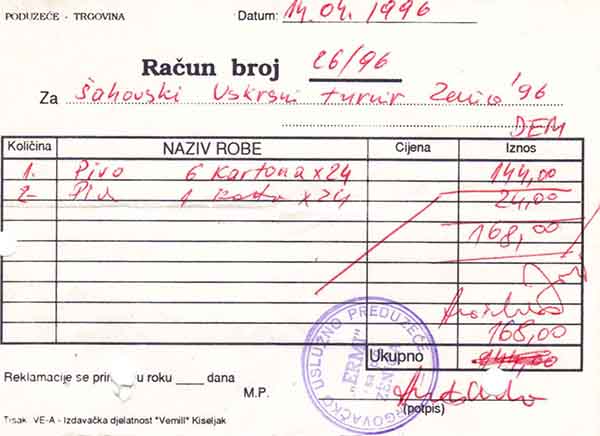 PODUZEĆE - TRGOVINA
Datum: 14.04./1996
Račun broj 26/96
Za Šahovski Uskrsni turnir Zenica '96
DEM
Količina NAZIV ROBE Cijena Iznos
1. Pivo 6 kartona x 24 144,00
2- x 24 24,00
168,00
168,00
Ukupno 144,00
Reklamacije se u roku ____ dana
M.P.
(potpis)
USLUŽNO PREDUZEĆE
"ERMI"
Tisak VE-A - Izdavačka djelatnost "Vemill" Kiseljak